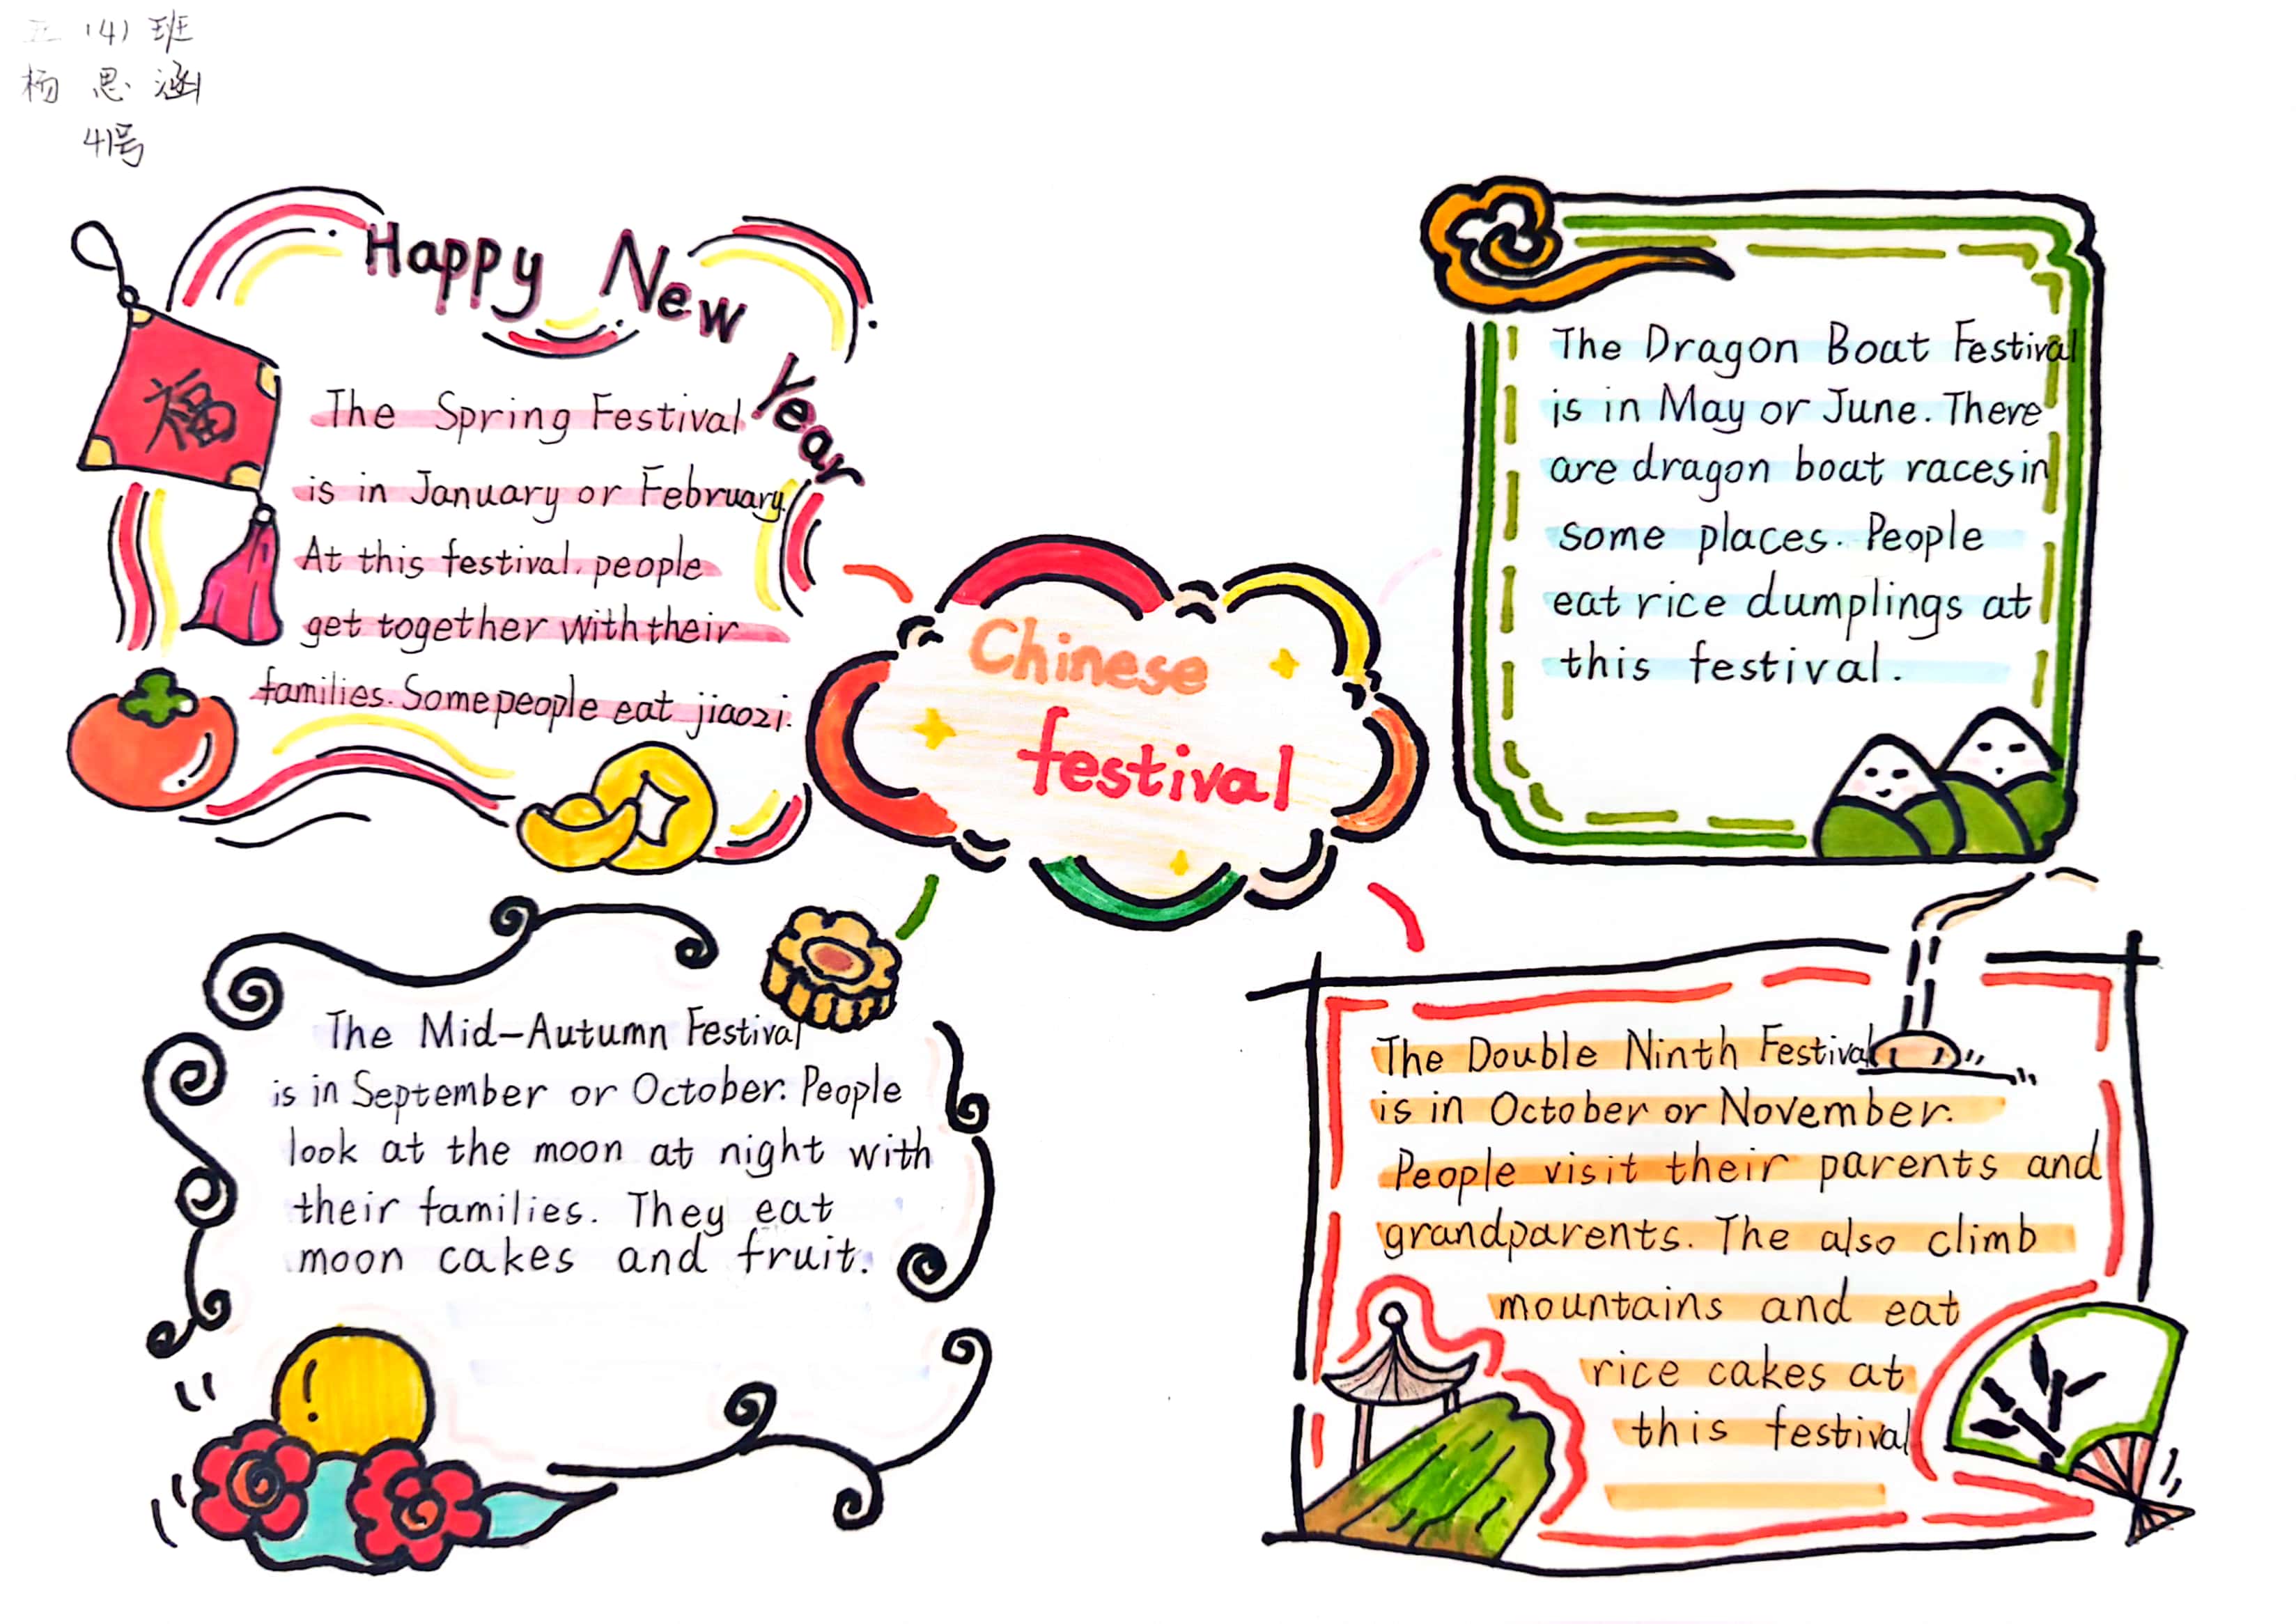 五(4)班
杨思涵
41号
Happy New Year
福
The Spring Festival
is in January or February.
At this festival, people
get together with their
families. Some people eat jiaozi.
Chinese
festival
The Dragon Boat Festival
is in May or June. There
are dragon boat races in
some places. People
eat rice dumplings at
this festival.
The Mid-Autumn Festival
is in September or October. People
look at the moon at night with
their families. They eat
moon cakes and fruit.
The Double Ninth Festival
is in October or November.
People visit their parents and
grandparents. The also climb
mountains and eat
rice cakes at
this festival